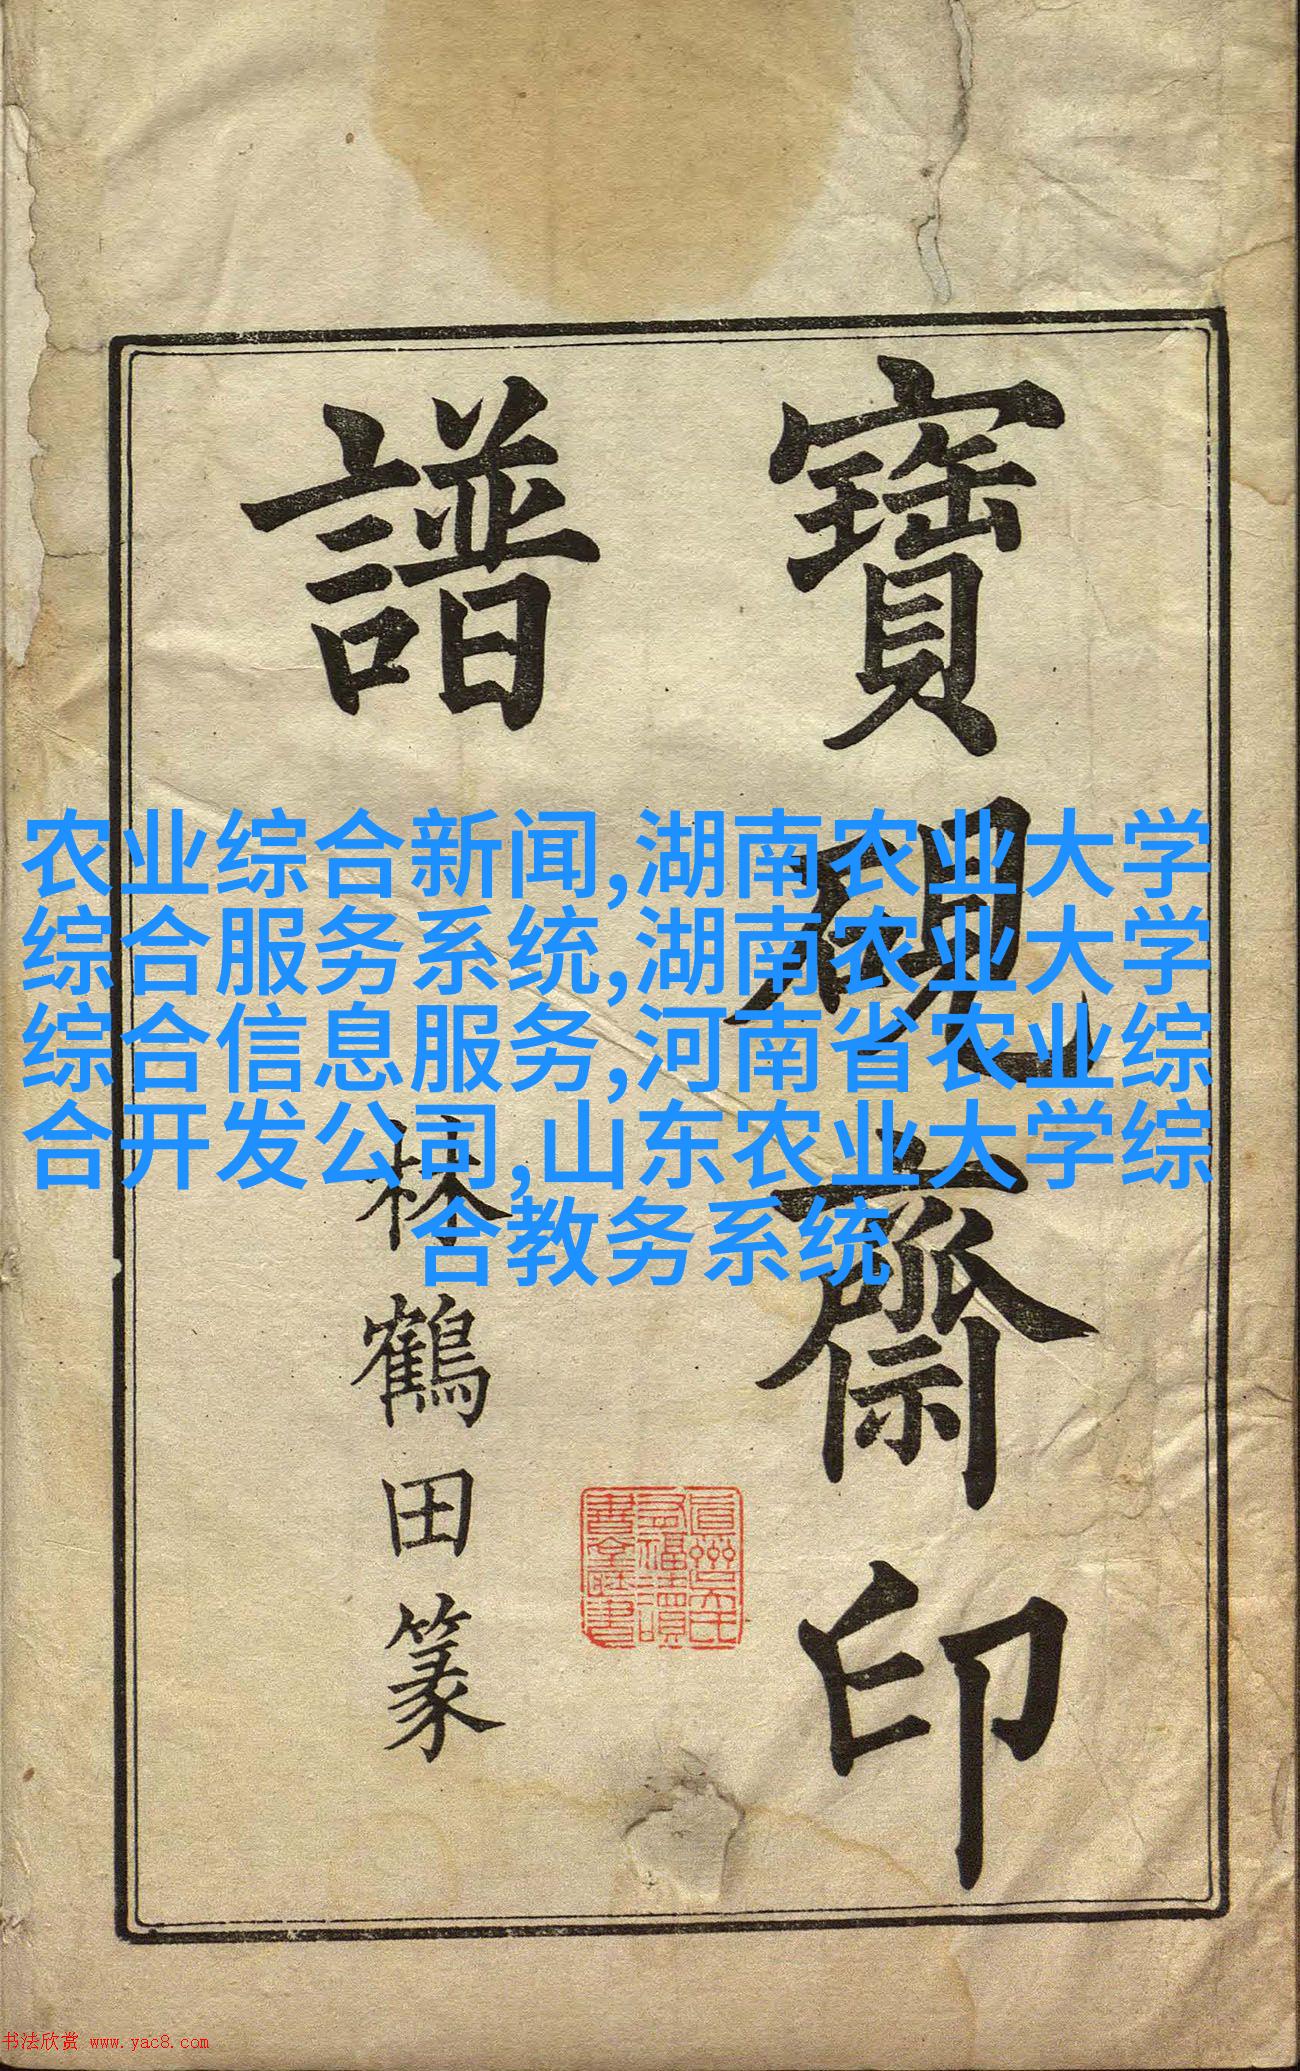 寶硯齋印
譜
林鶴田篆
真州吳氏
有福讀
書堂藏書
农业综合新闻,湖南农业大学
综合服务系统,湖南农业大学
综合信息服务,河南省农业综
合开发公司,山东农业大学综
合教务系统
书法欣赏 www.yac8.com